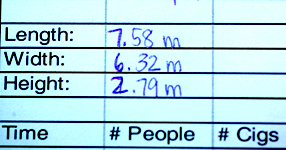 Length: 7.58 m
Width: 6.32 m
Height: 2.79 m
Time # People # Cigs